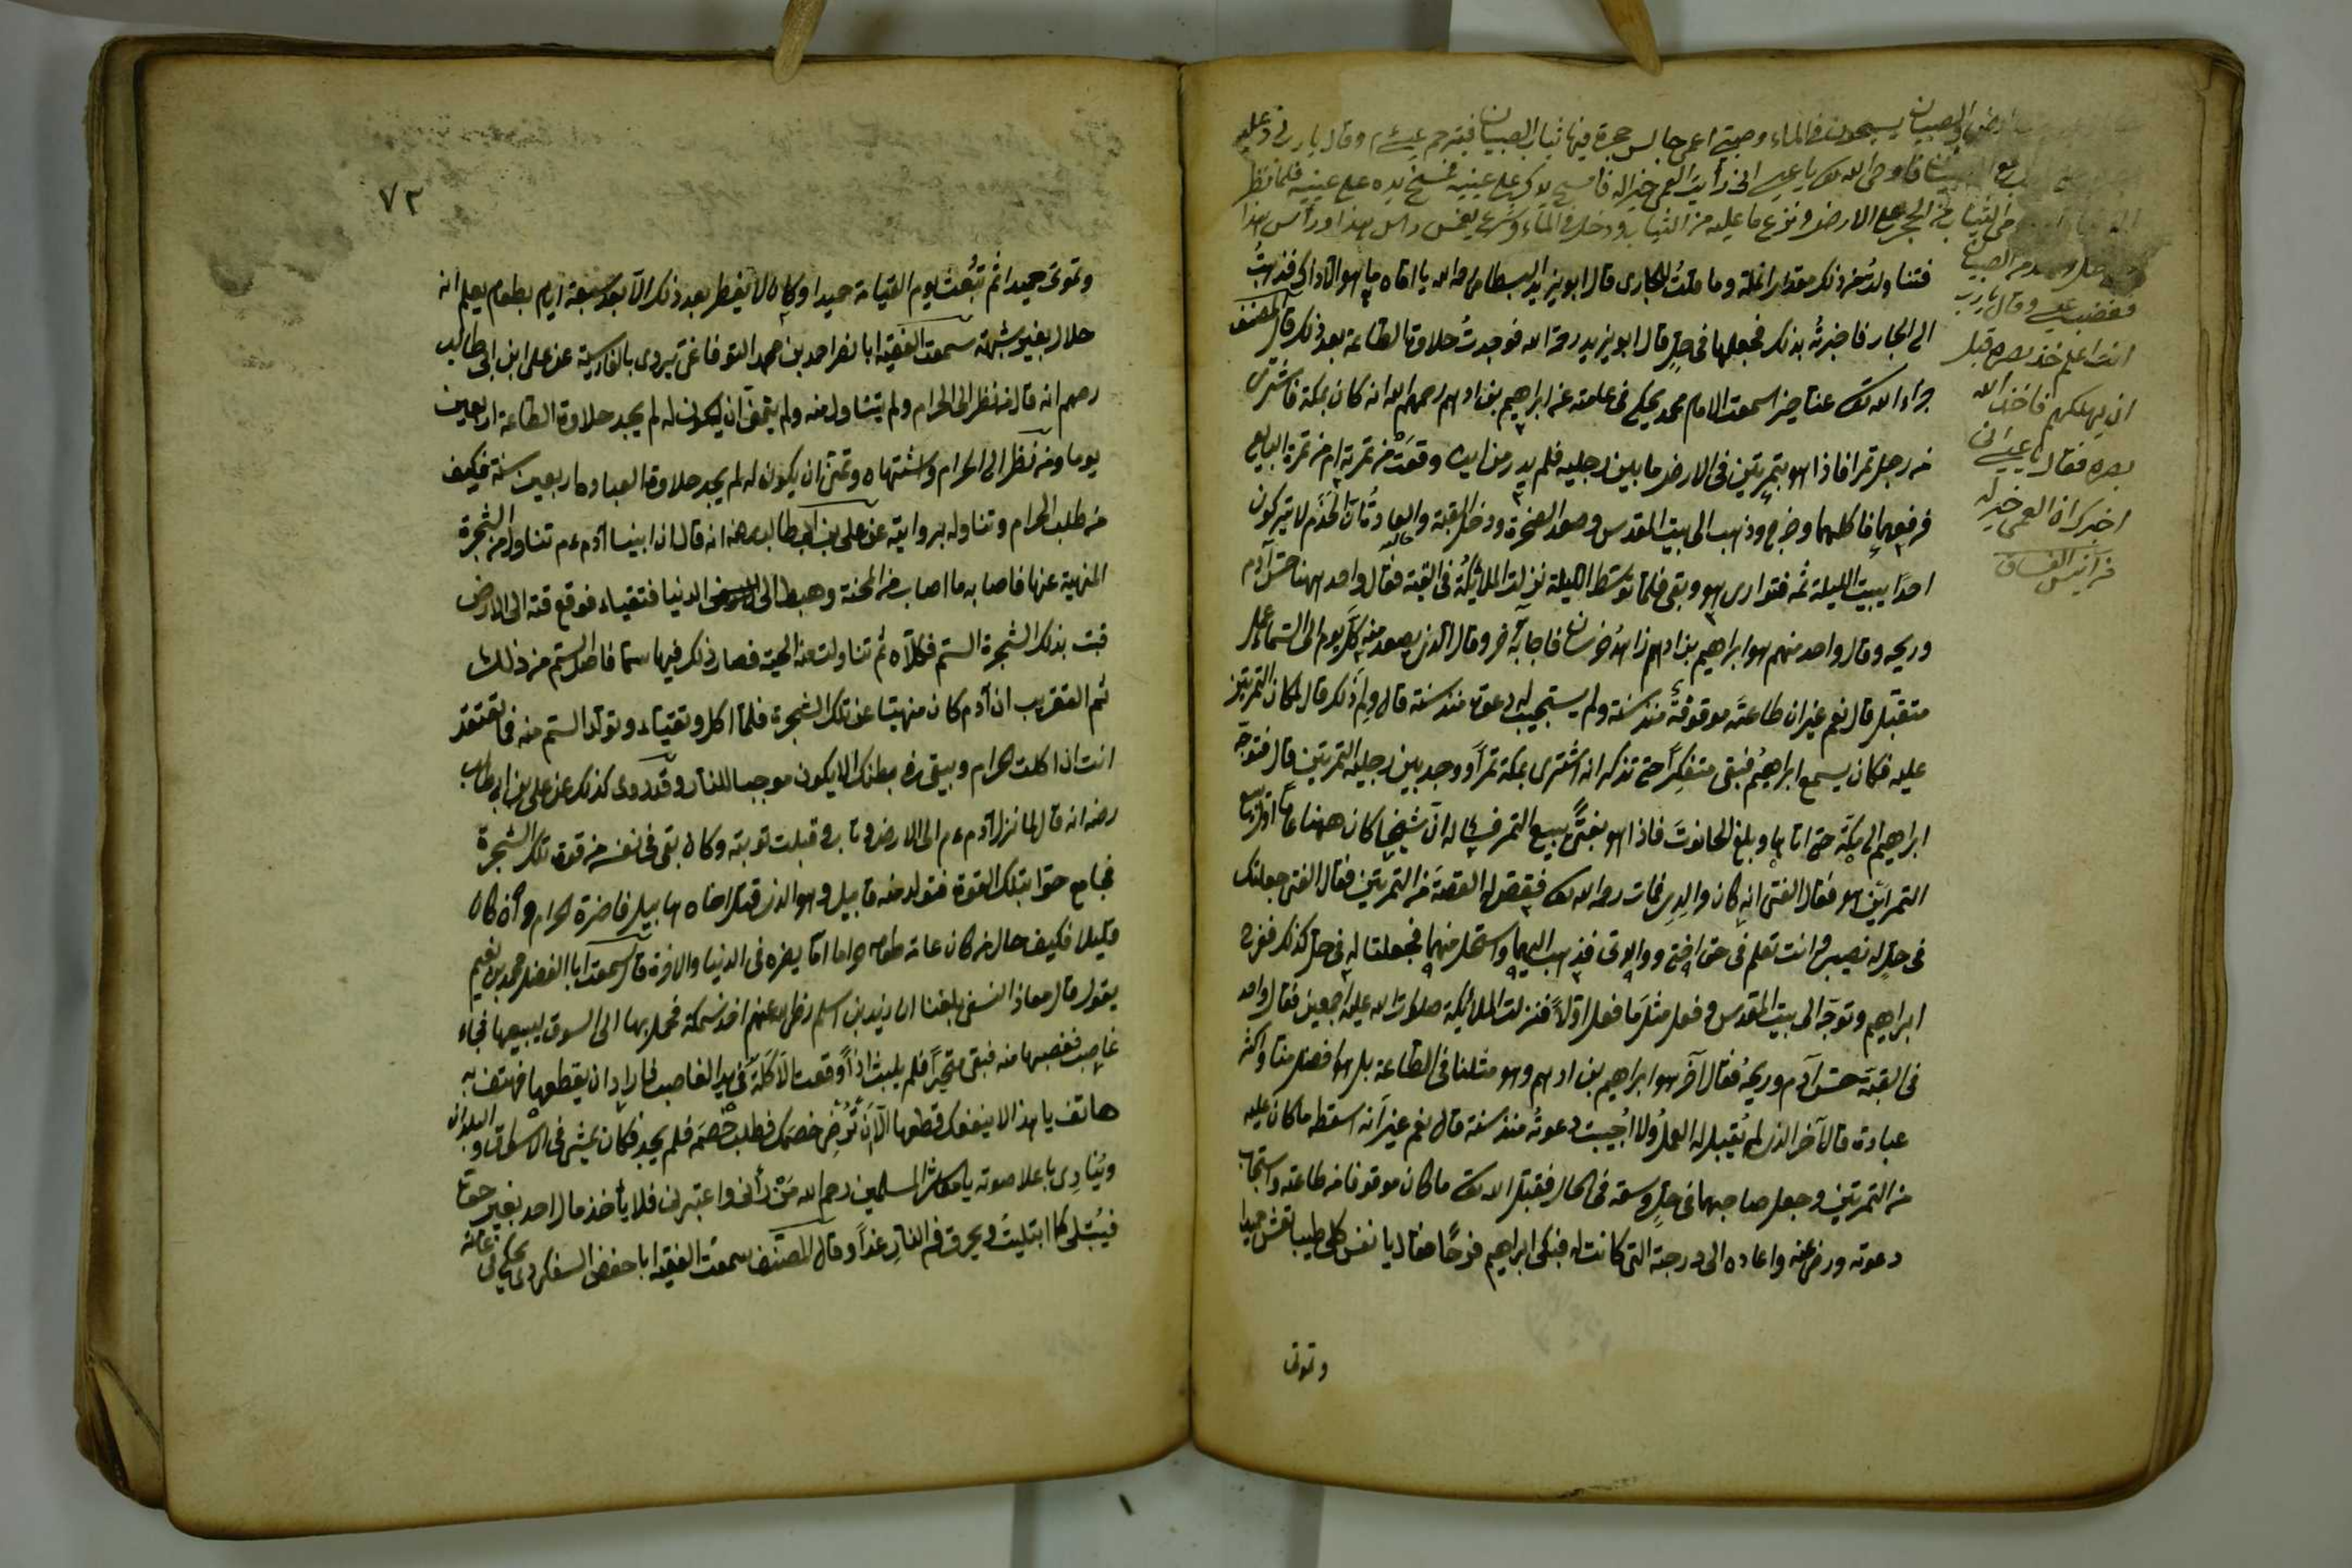 والصبيان يسبحون في الماء وصبي اعمى جالس حجرة فيها ثياب الصبيان فيترحم عيسى ع م وقال يا رب
فاوحى الله تعالى يا عيسى اني رأيت العمى خيرا له فامسح يدك على عينيه فمسح يده على عينيه فلما نظر
الحجر على الارض ونزع ما عليه من الثياب ودخل في الماء وشرع يغمس رأس هذا ورأس هذا
من الصبيان
فغضب عيسى وقال يا رب
انت اعلم خذ بصره قبل
ان يهلكهم فاخذ الله
بصره فقال يا عيسى اني
اخبرك ان العمى خير له
من انيس الفساق
فتناولت من ذلك مقدار انملة وما قلت للجاري قال ابو يزيد البسطامي رحمه الله يا اماه ما هو الا ذاك فذهبت
الى الجار فاخبرته بذلك فجعلها في حل قال ابو يزيد رحمة الله فوجدت حلاوة الطاعة بعد ذلك قال المصنف
جزاه الله تعالى عنا خيرا سمعت الامام محمد يحكي في علمته عن ابراهيم بن ادهم رحمهم الله انه كان بمكة فاشترى
من رجل تمرا فاذا هو بتمرتين في الارض ما بين رجليه فلم يدر من اين وقعت من تمرته ام من تمرة البايع
فرفعهما فاكلهما وخرج وذهب الى بيت المقدس وصعد الصخرة ودخل القبة والعادة ان الخدم لا يتركون
احدا يبيت الليلة ثمه فتوارى هو وبقى فلما توسط الليلة نزلت الملائكة في القبة فقال واحد ههنا حس آدم
وريحه وقال واحد منهم هو ابراهيم بن ادهم زاهد خرسان فاجابه آخر وقال الذي يصعد منه كل يوم الى السماء عمل
متقبل قال نعم غير ان طاعته موقوفة منذ سنة ولم يستجيب له دعوة منذ سنة قال ولم ذلك قال لمكان التمرتين
عليه فكان يسمع ابراهيم فبقى متفكرا حتى تذكر انه اشترى بمكة تمرا ووجد بين رجليه التمرتين قال فتوجه
ابراهيم الى مكة حتى اتاها وبلغ الحانوت فاذا هو بفتى يبيع التمر فسئاله ان شيخا كان ههنا عاما اول يبيع
التمر اين هو فقال الفتى انه كان والدي فمات رحمه الله تعالى فقص له القصة من التمرتين فقال الفتى جعلتك
في حل له نصيبي وانت تعلم في حق اختي ووالدتي فذهب اليهما واستحل منهما فجعلتا له في حل كذلك فخرج
ابراهيم وتوجه الى بيت المقدس وفعل مثل ما فعل اولا فنزلت الملائكة صلوات الله عليهم اجمعين فقال واحد
في القبة حس آدم وريحه فقال آخر هو ابراهيم بن ادهم وهو مثلنا في الطاعة بل هو افضل منا واكثر
عبادة قال آخر الذي لم يقبل له العمل ولا اجيبت دعوته منذ سنة قال نعم غير انه اسقط ما كان عليه
من التمرتين وجعل صاحبهما في حل وسعة في الحال فقبل الله تعالى ما كان موقوفا من طاعته واستجاب
دعوته ورضى عنه واعاده الى درجته التي كانت له فبكى ابراهيم فرحا فقال يا نفس كلي طيبا تعش حميدا
وتموتى
٧٢
وتموتى حميدا ثم تبعث يوم القيامة حميدا وكان لا يفطر بعد ذلك الا بعد سبعة ايام بطعام يعلم انه
حلال بغير شبهة سمعت الفقيه ابا نصر احمد بن محمد يروى بالفارسية عن على ابن ابى طالب
رضهم انه قال من نظر الى الحرام ولم يتناول منه ولم يتمن ان يكون له لم يجد حلاوة الطاعة اربعين
يوما ومن نظر الى الحرام واشتهاه وتمنى ان يكون له لم يجد حلاوة العبادة اربعين سنة فكيف
من طلب الحرام وتناوله بروايته عن على بن ابى طالب رضه انه قال ان ابينا آدم ع م تناول من الشجرة
المنهية عنها فاصابه ما اصاب من المحنة وهبط الى الدنيا فتقياء فوقع قئه الى الارض
نبت بذلك الشجرة السم فكلأه ثم تناولت منه الحية فصار ذلك فيها سما فاصل السم من ذلك
ثم التقريب ان آدم كان منهيا عن تلك الشجرة فلما اكل وتقياء وتولد السم منه فما تعتقد
انت اذا اكلت الحرام ويبقى في بطنك الا يكون موجبا للنار وقد روى كذلك عن على بن ابى طالب
رضه انه قال لما نزل آدم ع م الى الارض وتاب وقبلت توبته وكان بقى في نفسه من قوة تلك الشجرة
فجامع حوا بتلك القوة فتولد منه قابيل وهو الذي قتل اخاه هابيل فاضرة الحرام وان كان
قليلا فكيف حال من كان عامة طعامه حراما اما يضره في الدنيا والاخرة قال سمعت ابا الفضل محمد بن نعيم
يقول قال معاذ النسفى بلغنا ان زيد بن اسلم رضى الله عنهم اخذ سمكة فحمل بها الى السوق ليبيعها فجاء
غاصب فغصبها منه فبقى متحيرا فلم يلبث اذا وقعت الآكلة في يد الغاصب فاراد ان يقطعها فهتف به
هاتف يا هذا لا ينفعك قطعها الآن ترض خصمك فطلب خصمه فلم يجد فكان يمشى في الاسواق والبلدان
وينادى باعلا صوته يا معاشر المسلمين رحم الله من رأنى واعتبر بى فلا يأخذ مال احد بغير حق
فيبتلى كما ابتليت ويحرق في النار غدا وقال المصنف سمعت الفقيه ابا حفص السفكردى يحكى في عامته